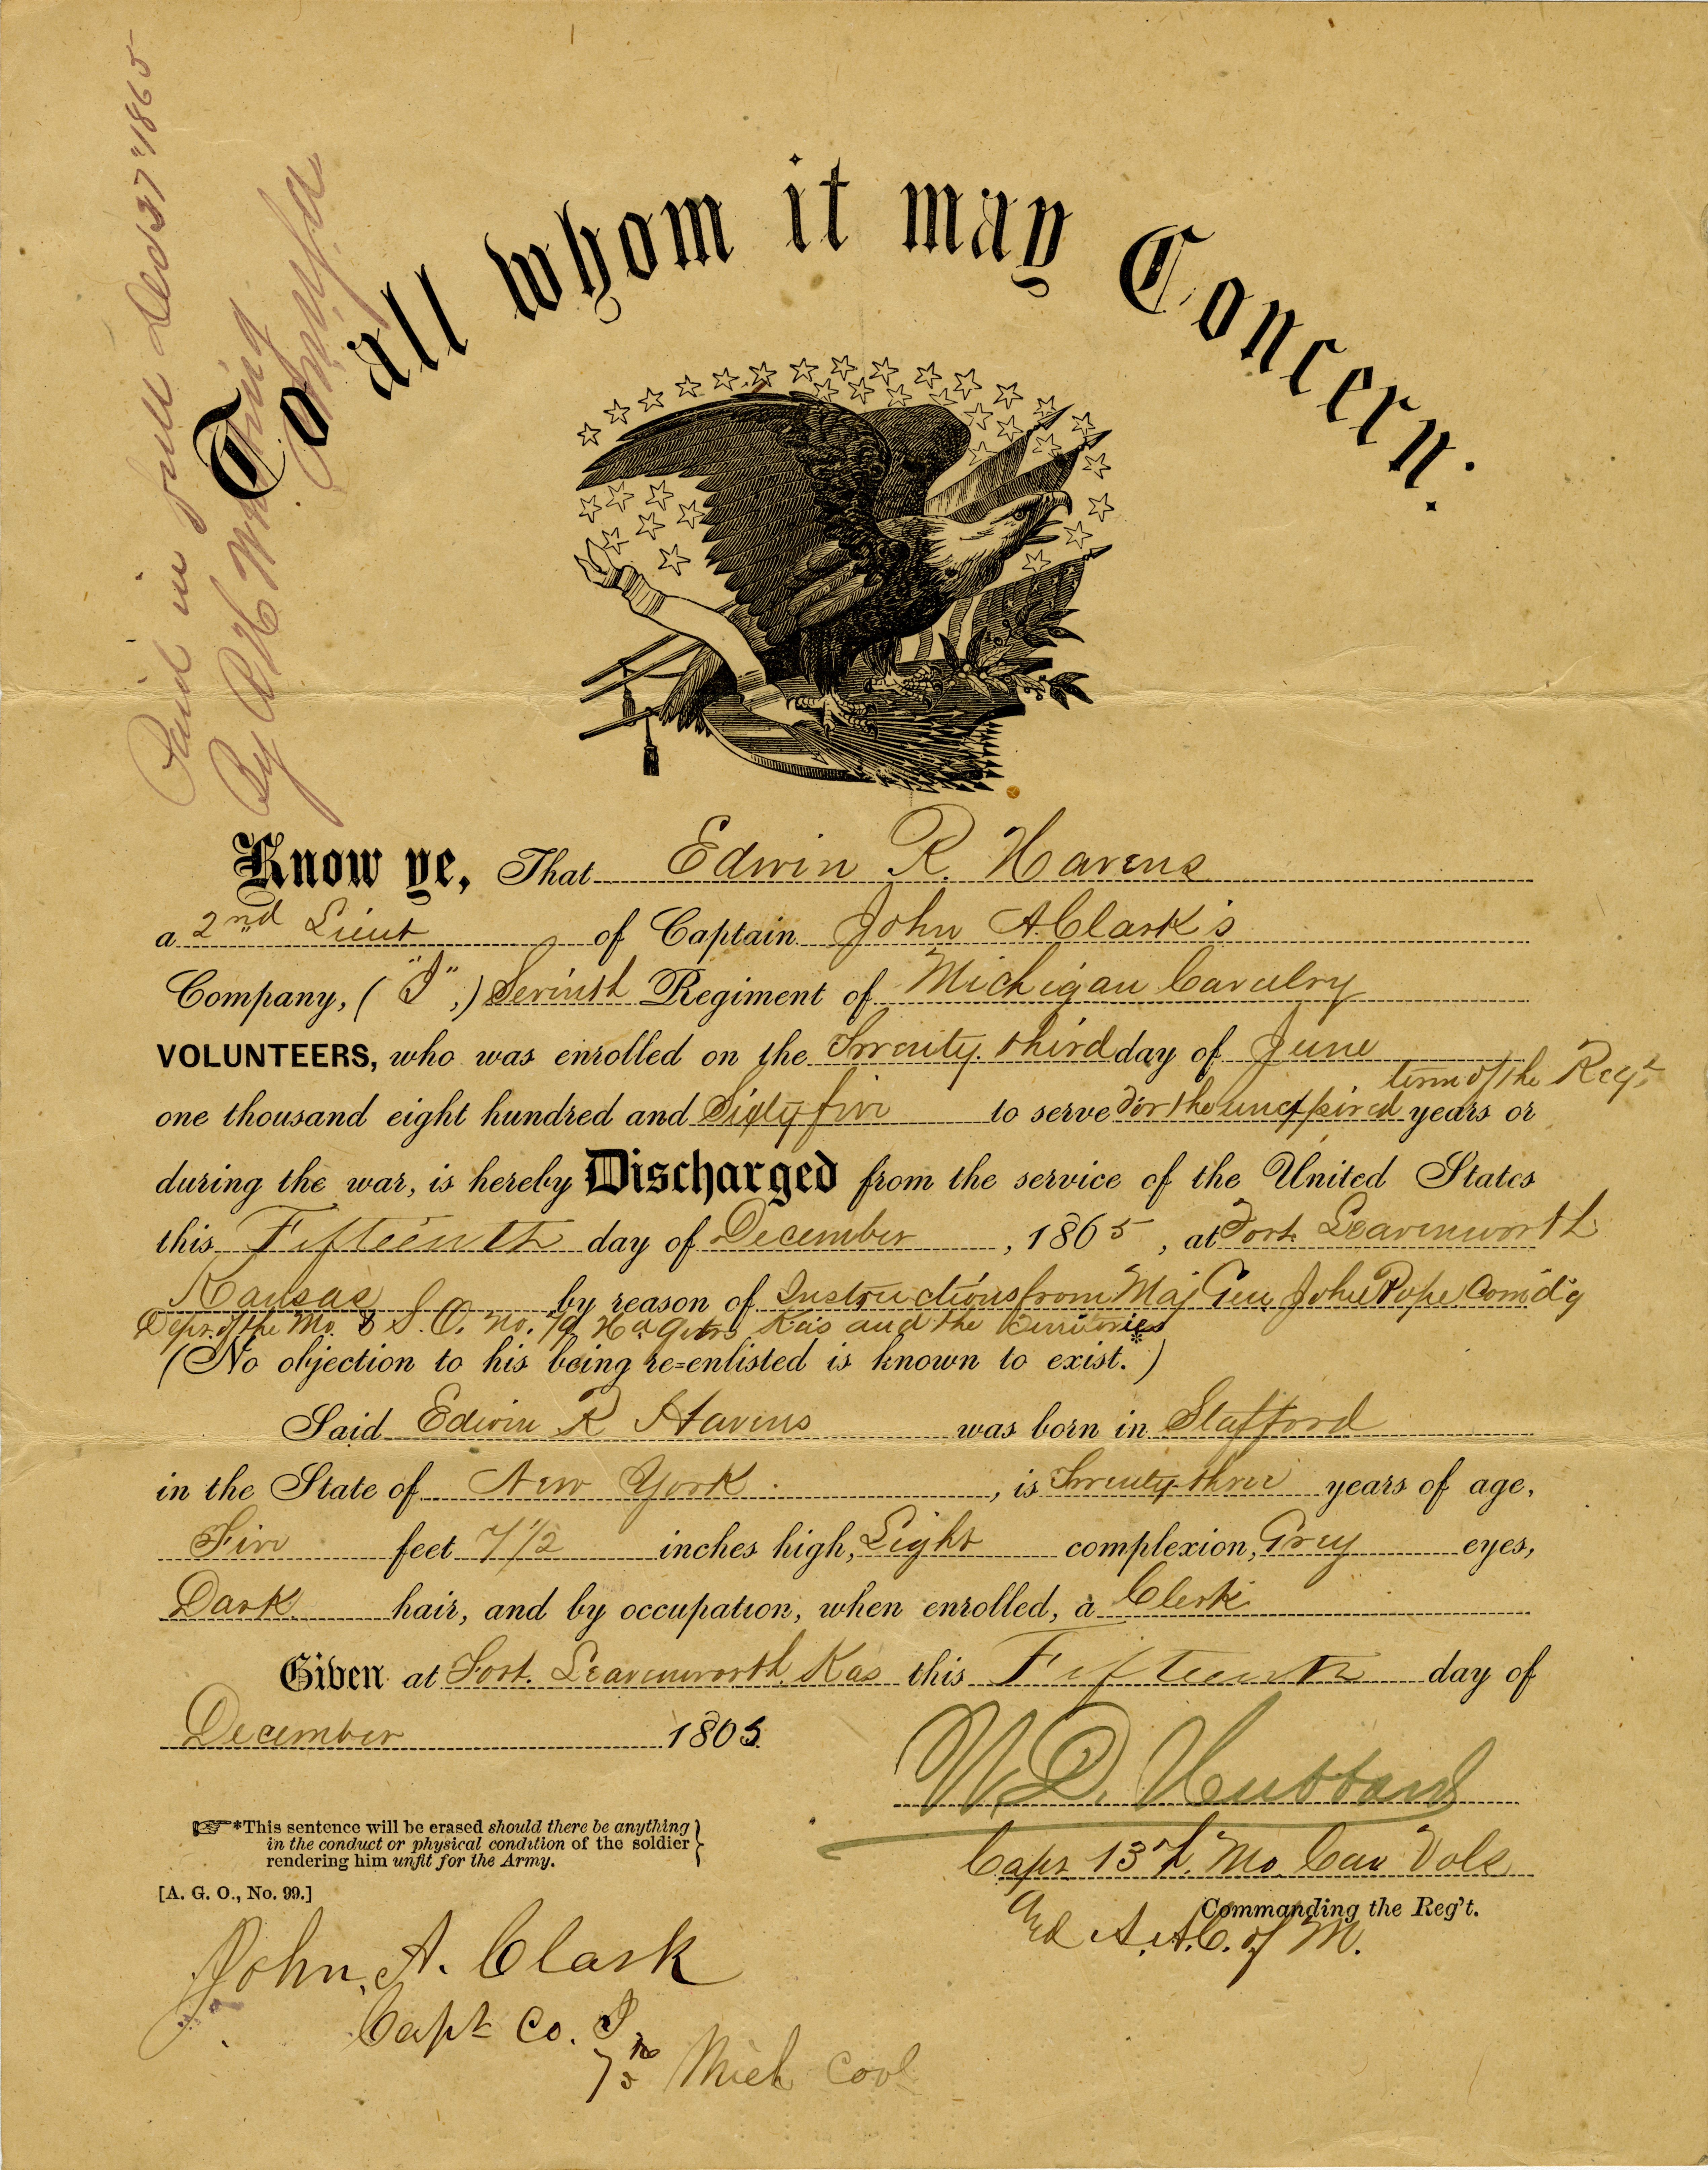 Paid in full Dec 27 "1865
By R H
To all whom it may Concern:
Know ye, That Edwin R. Havens
a 2nd Lieut of Captain John A. Clark's
Company, ( "I" ,) Seventh Regiment of Michigan Cavalry
VOLUNTEERS, who was enrolled on the Twenty third day of June
one thousand eight hundred and Sixty five to serve For the unexpired term of the Regt years or
during the war, is hereby Discharged from the service of the United States
this Fifteenth day of December, 1865, at Fort Leavenworth
Kansas by reason of Instructions from Maj Gen John Pope Com'd'g
Dept. of the Mo. & S. O. No. Hd Qrtrs Kas and the Territories
(No objection to his being re-enlisted is known to exist.*)
Said Edwin R Havens was born in Stafford
in the State of New York, is Twenty three years of age,
Five feet 7 1/2 inches high, Light complexion, Grey eyes,
Dark hair, and by occupation, when enrolled, a Clerk
Given at Fort Leavenworth Kas this Fifteenth day of
December 1865.
W. D. Hubbard
Capt 13th. Mo. Cav Vols
Commanding the Reg't.
And A. A. C. of M.
☞*This sentence will be erased should there be anything
in the conduct or physical condition of the soldier
rendering him unfit for the Army.
[A. G. O., No. 99.]
John A. Clark
Capt Co. I
7th Mich